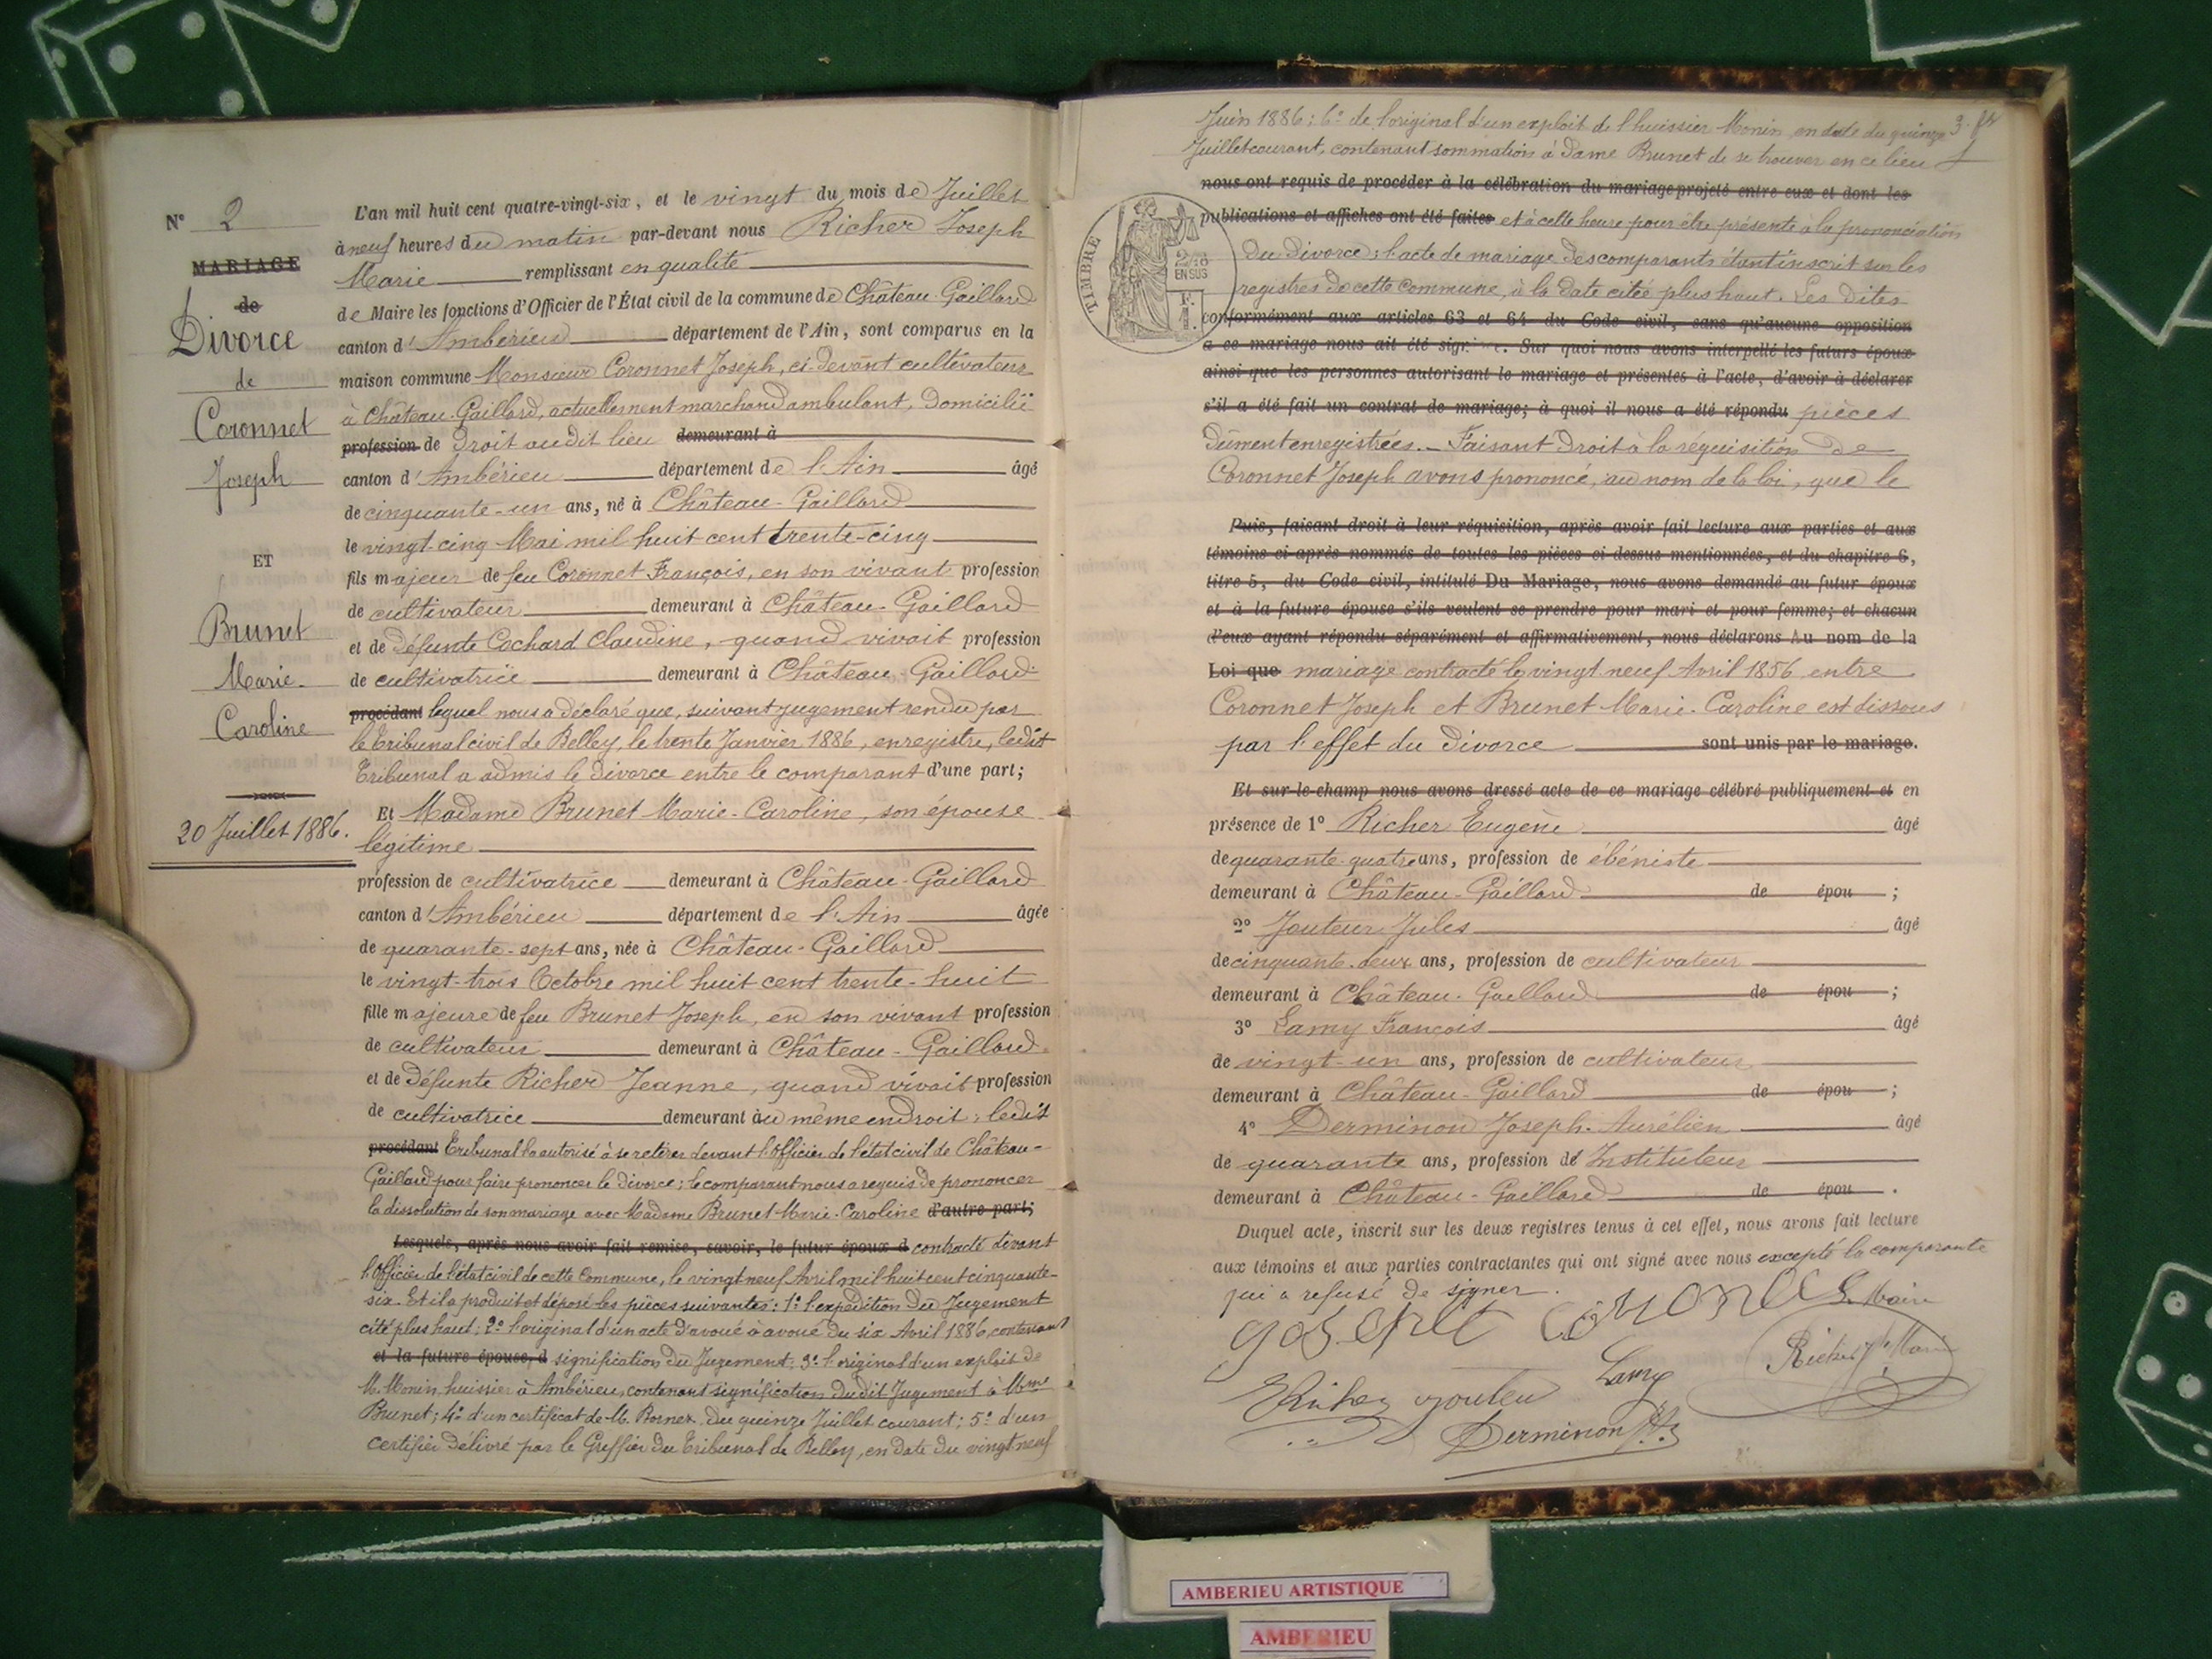 N° 2
MARIAGE
de
Divorce
de
Coronnet
Joseph
ET
Brunet
Marie
Caroline
20 Juillet 1886.
L'an mil huit cent quatre-vingt-six, et le vingt du mois de Juillet
à neuf heures du matin par-devant nous Richer Joseph
Marie remplissant en qualité
de Maire les fonctions d'Officier de l'État civil de la commune de Château-Gaillard
canton d'Ambérieu département de l'Ain, sont comparus en la
maison commune Monsieur Coronnet Joseph, ci-devant cultivateur
à Château-Gaillard, actuellement marchand ambulant, domicilié
profession de droit audit lieu demeurant à
canton d'Ambérieu département de l'Ain âgé
de cinquante-un ans, né à Château-Gaillard
le vingt-cinq Mai mil huit cent trente-cinq
fils majeur de feu Coronnet François, en son vivant profession
de cultivateur demeurant à Château-Gaillard
et de défunte Cochard Claudine, quand vivait profession
de cultivatrice demeurant à Château-Gaillard
procédant lequel nous a déclaré que, suivant jugement rendu par
le Tribunal civil de Belley, le trente Janvier 1886, enregistré, ledit
Tribunal a admis le divorce entre le comparant d'une part;
Et Madame Brunet Marie-Caroline, son épouse
légitime
profession de cultivatrice demeurant à Château-Gaillard
canton d'Ambérieu département de l'Ain âgée
de quarante-sept ans, née à Château-Gaillard
le vingt-trois Octobre mil huit cent trente-huit
fille majeure de feu Brunet Joseph, en son vivant profession
de cultivateur demeurant à Château-Gaillard
et de défunte Richer Jeanne, quand vivait profession
de cultivatrice demeurant au même endroit; ledit
procédant Tribunal l'a autorisé à se retirer devant l'Officier de l'état civil de Château-
Gaillard pour faire prononcer le divorce; le comparant nous a requis de prononcer
la dissolution de son mariage avec Madame Brunet Marie-Caroline d'autre part;
Lesquels, après nous avoir fait remise, savoir, le futur époux d contracté devant
l'Officier de l'état civil de cette Commune, le vingt neuf Avril mil huit cent cinquante-
six. Et il a produit et déposé les pièces suivantes: 1° l'expédition du Jugement
cité plus haut; 2° l'original d'un acte d'avoué à avoué du six Avril 1886, contenant
et la future épouse, d signification du Jugement; 3° l'original d'un exploit de
M. Monin huissier à Ambérieu, contenant signification dudit Jugement à Mme
Brunet; 4° d'un certificat de M. du quinze Juillet courant; 5° d'un
certifié délivré par le Greffier du Tribunal de Belley, en date du vingt neuf
3.
Juin 1886; 6° de l'original d'un exploit de l'huissier Monin en date du quinze
Juillet courant, contenant sommation à dame Brunet de se trouver en ce lieu
nous ont requis de procéder à la célébration du mariage projeté entre eux et dont les
publications et affiches ont été faites et à cette heure pour être présente à la prononciation
du divorce; l'acte de mariage des comparants étant inscrit sur les
registres de cette Commune, à la date citée plus haut. Les dites
TIMBRE
EN SUS
conformément aux articles 63 et 64 du Code civil, sans qu'aucune opposition
a ce mariage nous ait été. Sur quoi nous avons interpellé les futurs époux
ainsi que les personnes autorisant le mariage et présentes à l'acte, d'avoir à déclarer
s'il a été fait un contrat de mariage; à quoi il nous a été répondu pièces
dûment enregistrées. Faisant droit à la réquisition de
Coronnet Joseph avons prononcé, au nom de la loi, que le
Puis, faisant droit à leur réquisition, après avoir fait lecture aux parties et aux
témoins ci-après nommés de toutes les pièces ci dessus mentionnées, et du chapitre 6,
titre 5, du Code civil, intitulé Du Mariage, nous avons demandé au futur époux
et à la future épouse s'ils veulent se prendre pour mari et pour femme; et chacun
d'eux ayant répondu séparément et affirmativement, nous déclarons Au nom de la
Loi que mariage contracté le vingt neuf Avril 1856 entre
Coronnet Joseph et Brunet Marie-Caroline est dissous
par l'effet du divorce sont unis par le mariage.
Et sur-le-champ nous avons dressé acte de ce mariage célébré publiquement et en
présence de 1° Richer Eugène âgé
de quarante-quatre ans, profession de ébéniste
demeurant à Château-Gaillard de épou ;
2° Jouteur Jules âgé
de cinquante-deux ans, profession de cultivateur
demeurant à Château-Gaillard de épou ;
3° Lamy François âgé
de vingt-un ans, profession de cultivateur
demeurant à Château-Gaillard de épou ;
4° Derminon Joseph-Aurélien âgé
de quarante ans, profession d'Instituteur
demeurant à Château-Gaillard de épou .
Duquel acte, inscrit sur les deux registres tenus à cet effet, nous avons fait lecture
aux témoins et aux parties contractantes qui ont signé avec nous excepté la comparante
qui a refusé de signer.
Le Maire
Lamy
Derminon
AMBERIEU ARTISTIQUE
AMBERIEU